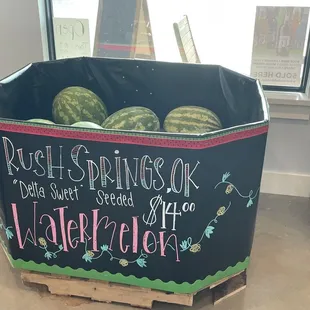 Rush Springs, OK
"Delta Sweet" Seeded $14.00
Watermelon
SOLD HERE